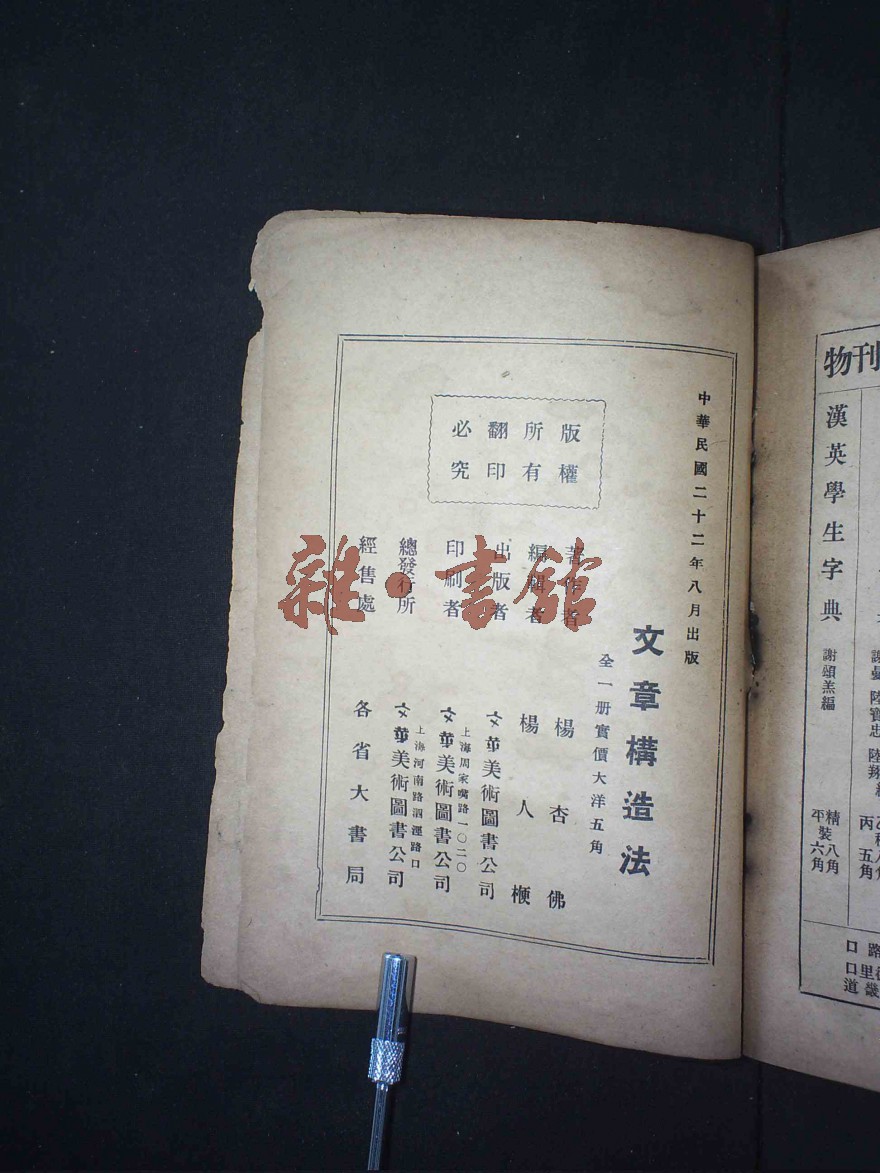 中華民國二十二年八月出版
文章構造法
全一册實價大洋五角
版權
所有
翻印
必究
著作者 楊杏佛
編輯者 楊人楩
出版者 文華美術圖書公司
上海周家嘴路一〇二〇
印刷者 文華美術圖書公司
上海河南路泗涇路口
總發行所 文華美術圖書公司
經售處 各省大書局
雜·書館
物刊
漢英學生字典
謝頌羔編
精裝八角
平 六角